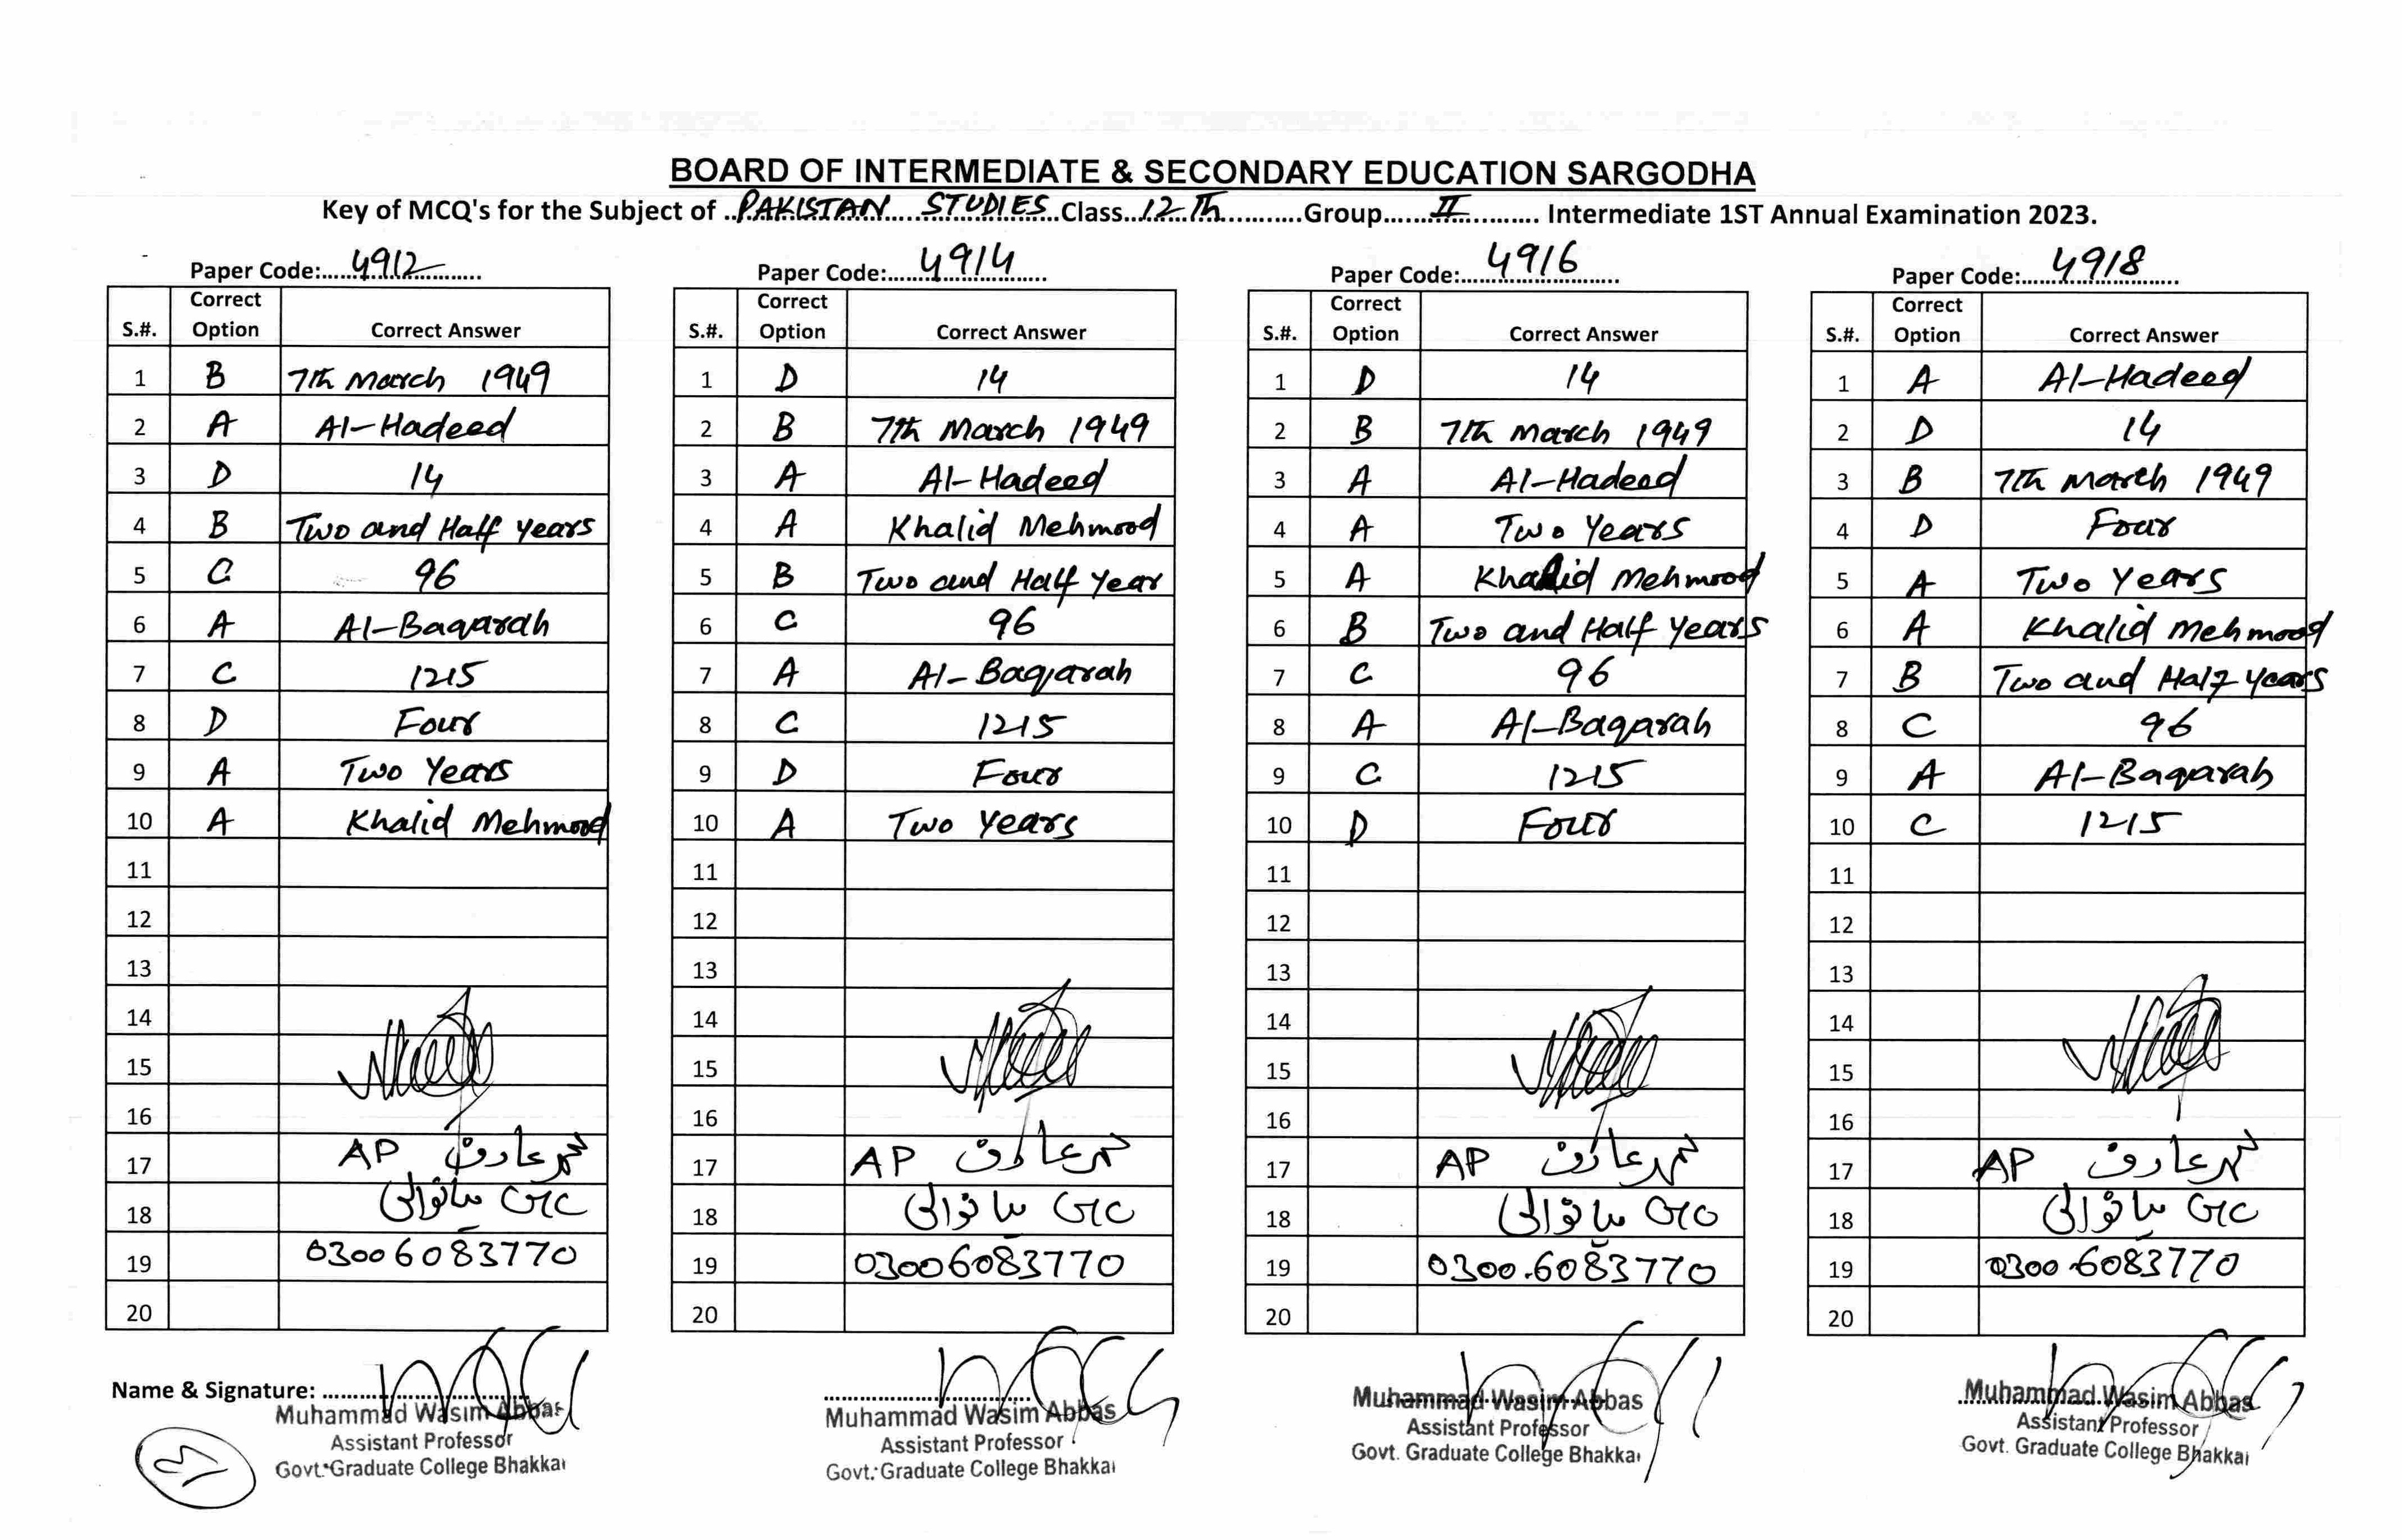 BOARD OF INTERMEDIATE & SECONDARY EDUCATION SARGODHA
Key of MCQ's for the Subject of PAKISTAN STUDIES Class 12Th Group II Intermediate 1ST Annual Examination 2023.
Paper Code: 4912
S.#. Correct Option Correct Answer
1 B 7th March 1949
2 A Al-Hadeed
3 D 14
4 B Two and Half years
5 C 96
6 A Al-Baqarah
7 C 1215
8 D Four
9 A Two Years
10 A Khalid Mehmood
11
12
13
14
15
16
17 AP محمد عارف
18 GC میانوالی
19 03006083770
20
Name & Signature:
Muhammad Wasim Abbas
Assistant Professor
Govt. Graduate College Bhakkar
Paper Code: 4914
S.#. Correct Option Correct Answer
1 D 14
2 B 7th March 1949
3 A Al-Hadeed
4 A Khalid Mehmood
5 B Two and Half Year
6 C 96
7 A Al-Baqarah
8 C 1215
9 D Four
10 A Two Years
11
12
13
14
15
16
17 AP محمد عارف
18 GC میانوالی
19 03006083770
20
Muhammad Wasim Abbas
Assistant Professor
Govt. Graduate College Bhakkar
Paper Code: 4916
S.#. Correct Option Correct Answer
1 D 14
2 B 7th March 1949
3 A Al-Hadeed
4 A Two Years
5 A Khalid Mehmood
6 B Two and Half Years
7 C 96
8 A Al-Baqarah
9 C 1215
10 D Four
11
12
13
14
15
16
17 AP محمد عارف
18 GC میانوالی
19 0300.6083770
20
Muhammad Wasim Abbas
Assistant Professor
Govt. Graduate College Bhakkar
Paper Code: 4918
S.#. Correct Option Correct Answer
1 A Al-Hadeed
2 D 14
3 B 7th March 1949
4 D Four
5 A Two Years
6 A Khalid Mehmood
7 B Two and Half years
8 C 96
9 A Al-Baqarah
10 C 1215
11
12
13
14
15
16
17 AP محمد عارف
18 GC میانوالی
19 0300.6083770
20
Muhammad Wasim Abbas
Assistant Professor
Govt. Graduate College Bhakkar